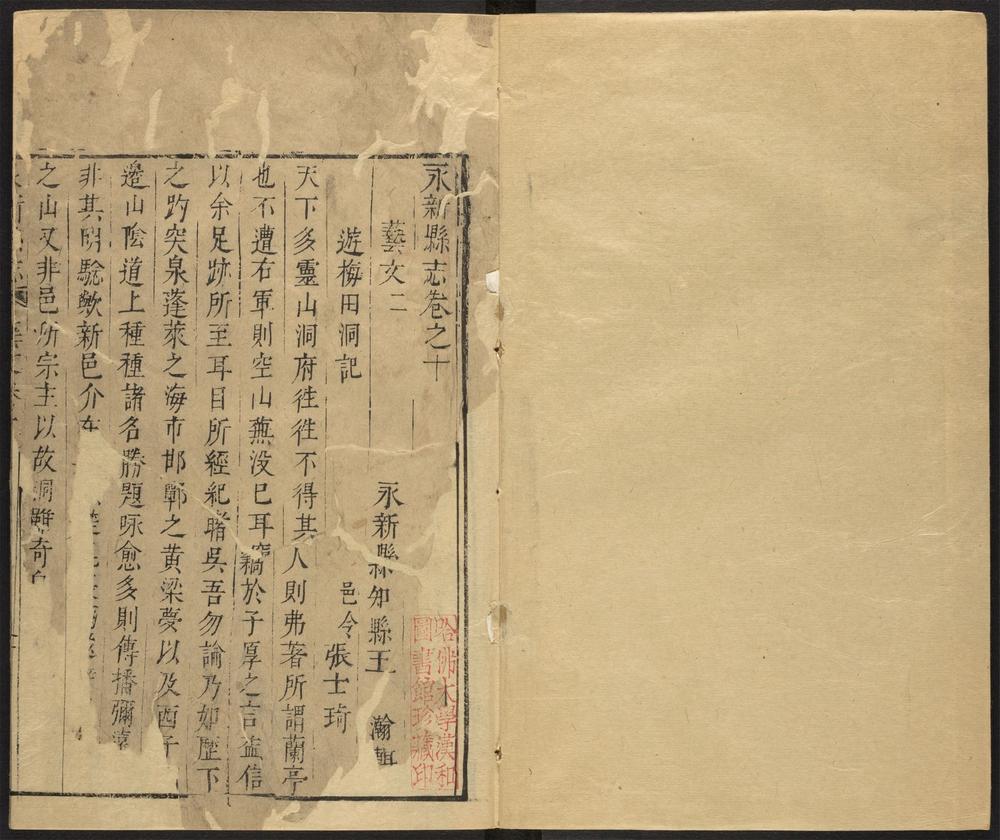 永新縣志卷之十
藝文二
永新縣知縣王瀚輯
遊梅田洞記
邑令張士琦
天下多靈山洞府徃徃不得其人則弗著所謂蘭亭
也不遭右軍則空山蕪没已耳竊於子厚之言益信
以余足跡所至耳目所經紀睹吳吾勿論乃如歷下
之趵突泉蓬萊之海市邯鄲之黄梁夢以及西子
邉山隂道上種種諸名勝題咏愈多則傳播彌遠
非其明騐歟新邑介在
之山又非邑所宗主以故洞雖奇
哈佛大學漢和
圖書館珍藏印